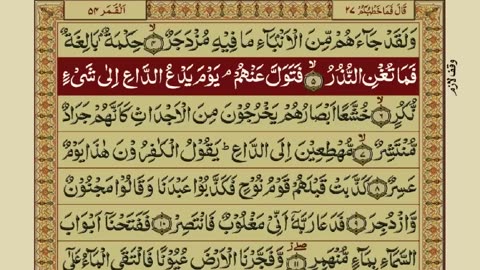 قَالَ فَمَا خَطْبُكُمْ ٢٧ اَلْقَمَر ٥٤
وَلَقَدْ جَآءَهُمْ مِّنَ الْاَنْۢبَآءِ مَا فِيْهِ مُزْدَجَرٌ ۙ﴿۴﴾ حِكْمَةٌۢ بَالِغَةٌ
فَمَا تُغْنِ النُّذُرُ ۙ﴿۵﴾ فَتَوَلَّ عَنْهُمْ ۘ يَوْمَ يَدْعُ الدَّاعِ اِلٰى شَىْءٍ
وقف لازم
نُّكُرٍ ۙ﴿۶﴾ خُشَّعًا اَبْصَارُهُمْ يَخْرُجُوْنَ مِنَ الْاَجْدَاثِ كَاَنَّهُمْ جَرَادٌ
مُّنْتَشِرٌ ۙ﴿۷﴾ مُّهْطِعِيْنَ اِلَى الدَّاعِ ؕ يَقُوْلُ الْكٰفِرُوْنَ هٰذَا يَوْمٌ
عَسِرٌ ﴿۸﴾ كَذَّبَتْ قَبْلَهُمْ قَوْمُ نُوْحٍ فَكَذَّبُوْا عَبْدَنَا وَقَالُوْا مَجْنُوْنٌ
وَّازْدُجِرَ ﴿۹﴾ فَدَعَا رَبَّهٗۤ اَنِّىْ مَغْلُوْبٌ فَانْتَصِرْ ﴿۱۰﴾ فَفَتَحْنَاۤ اَبْوَابَ
السَّمَآءِ بِمَآءٍ مُّنْهَمِرٍ ۖ﴿۱۱﴾ وَّفَجَّرْنَا الْاَرْضَ عُيُوْنًا فَالْتَقَى الْمَآءُ عَلٰٓى